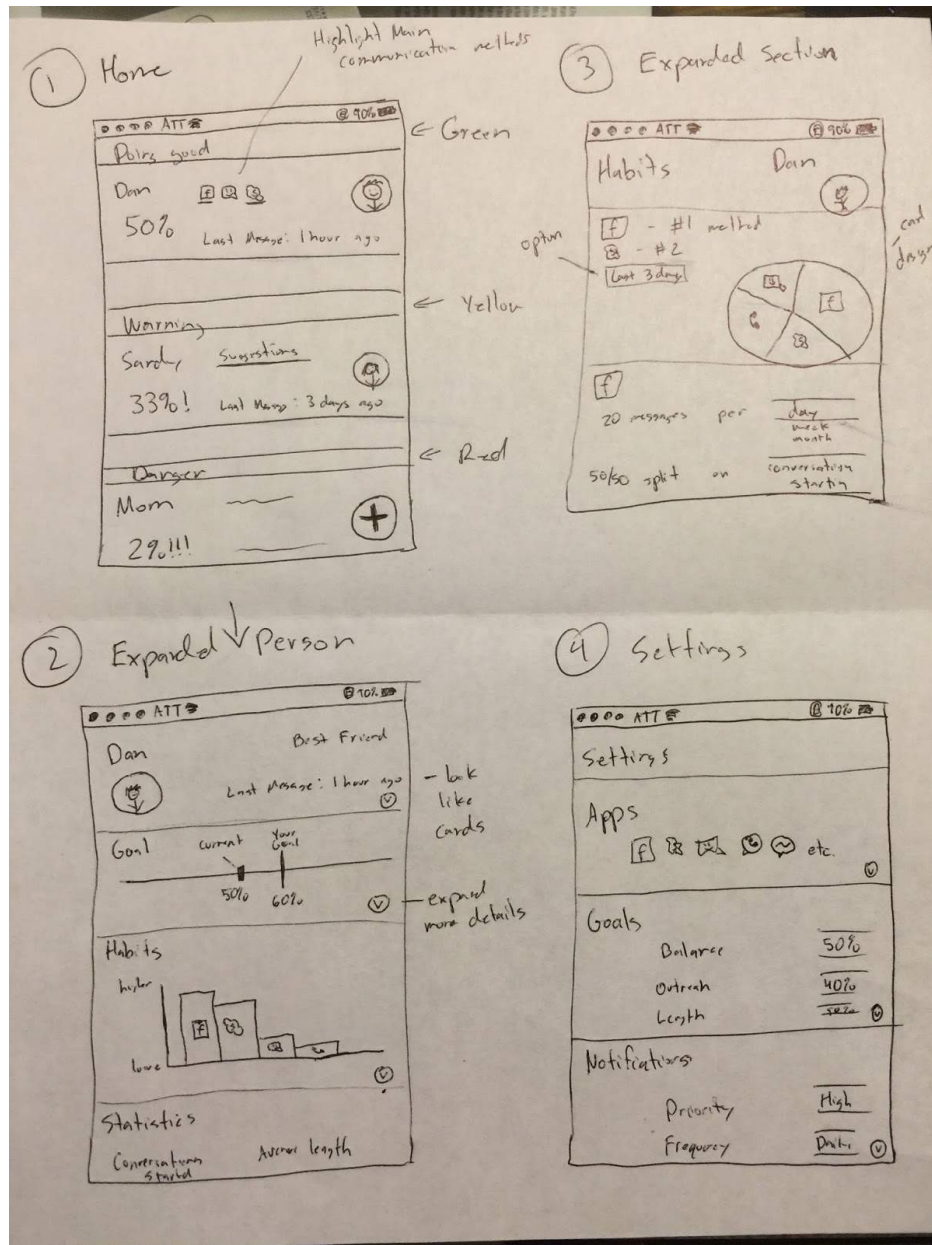 1 Home
Highlight Main
communication methods
ATT 90%
← Green
Doing good
Dan
50%
Last Message: 1 hour ago
← Yellow
Warning
Sandy Suggestions
33%! Last Message: 3 days ago
← Red
Danger
Mom
2%!!!
3 Expanded Section
ATT 90%
Habits Dan
card
design
f - #1 method
- #2
option
Last 3 days
f
f
20 messages per day
week
month
50/50 split on conversation
starting
2 Expanded Person
ATT 90%
Dan Best Friend
Last Message: 1 hour ago
- look
like
cards
Goal current Your
Goal
50% 60%
- expand
more details
Habits
higher
f
lower
Statistics
Conversations
started
Average length
4 Settings
ATT 90%
Settings
Apps
f etc.
Goals
Balance 50%
Outreach 40%
Length 50%
Notifications
Priority High
Frequency Daily